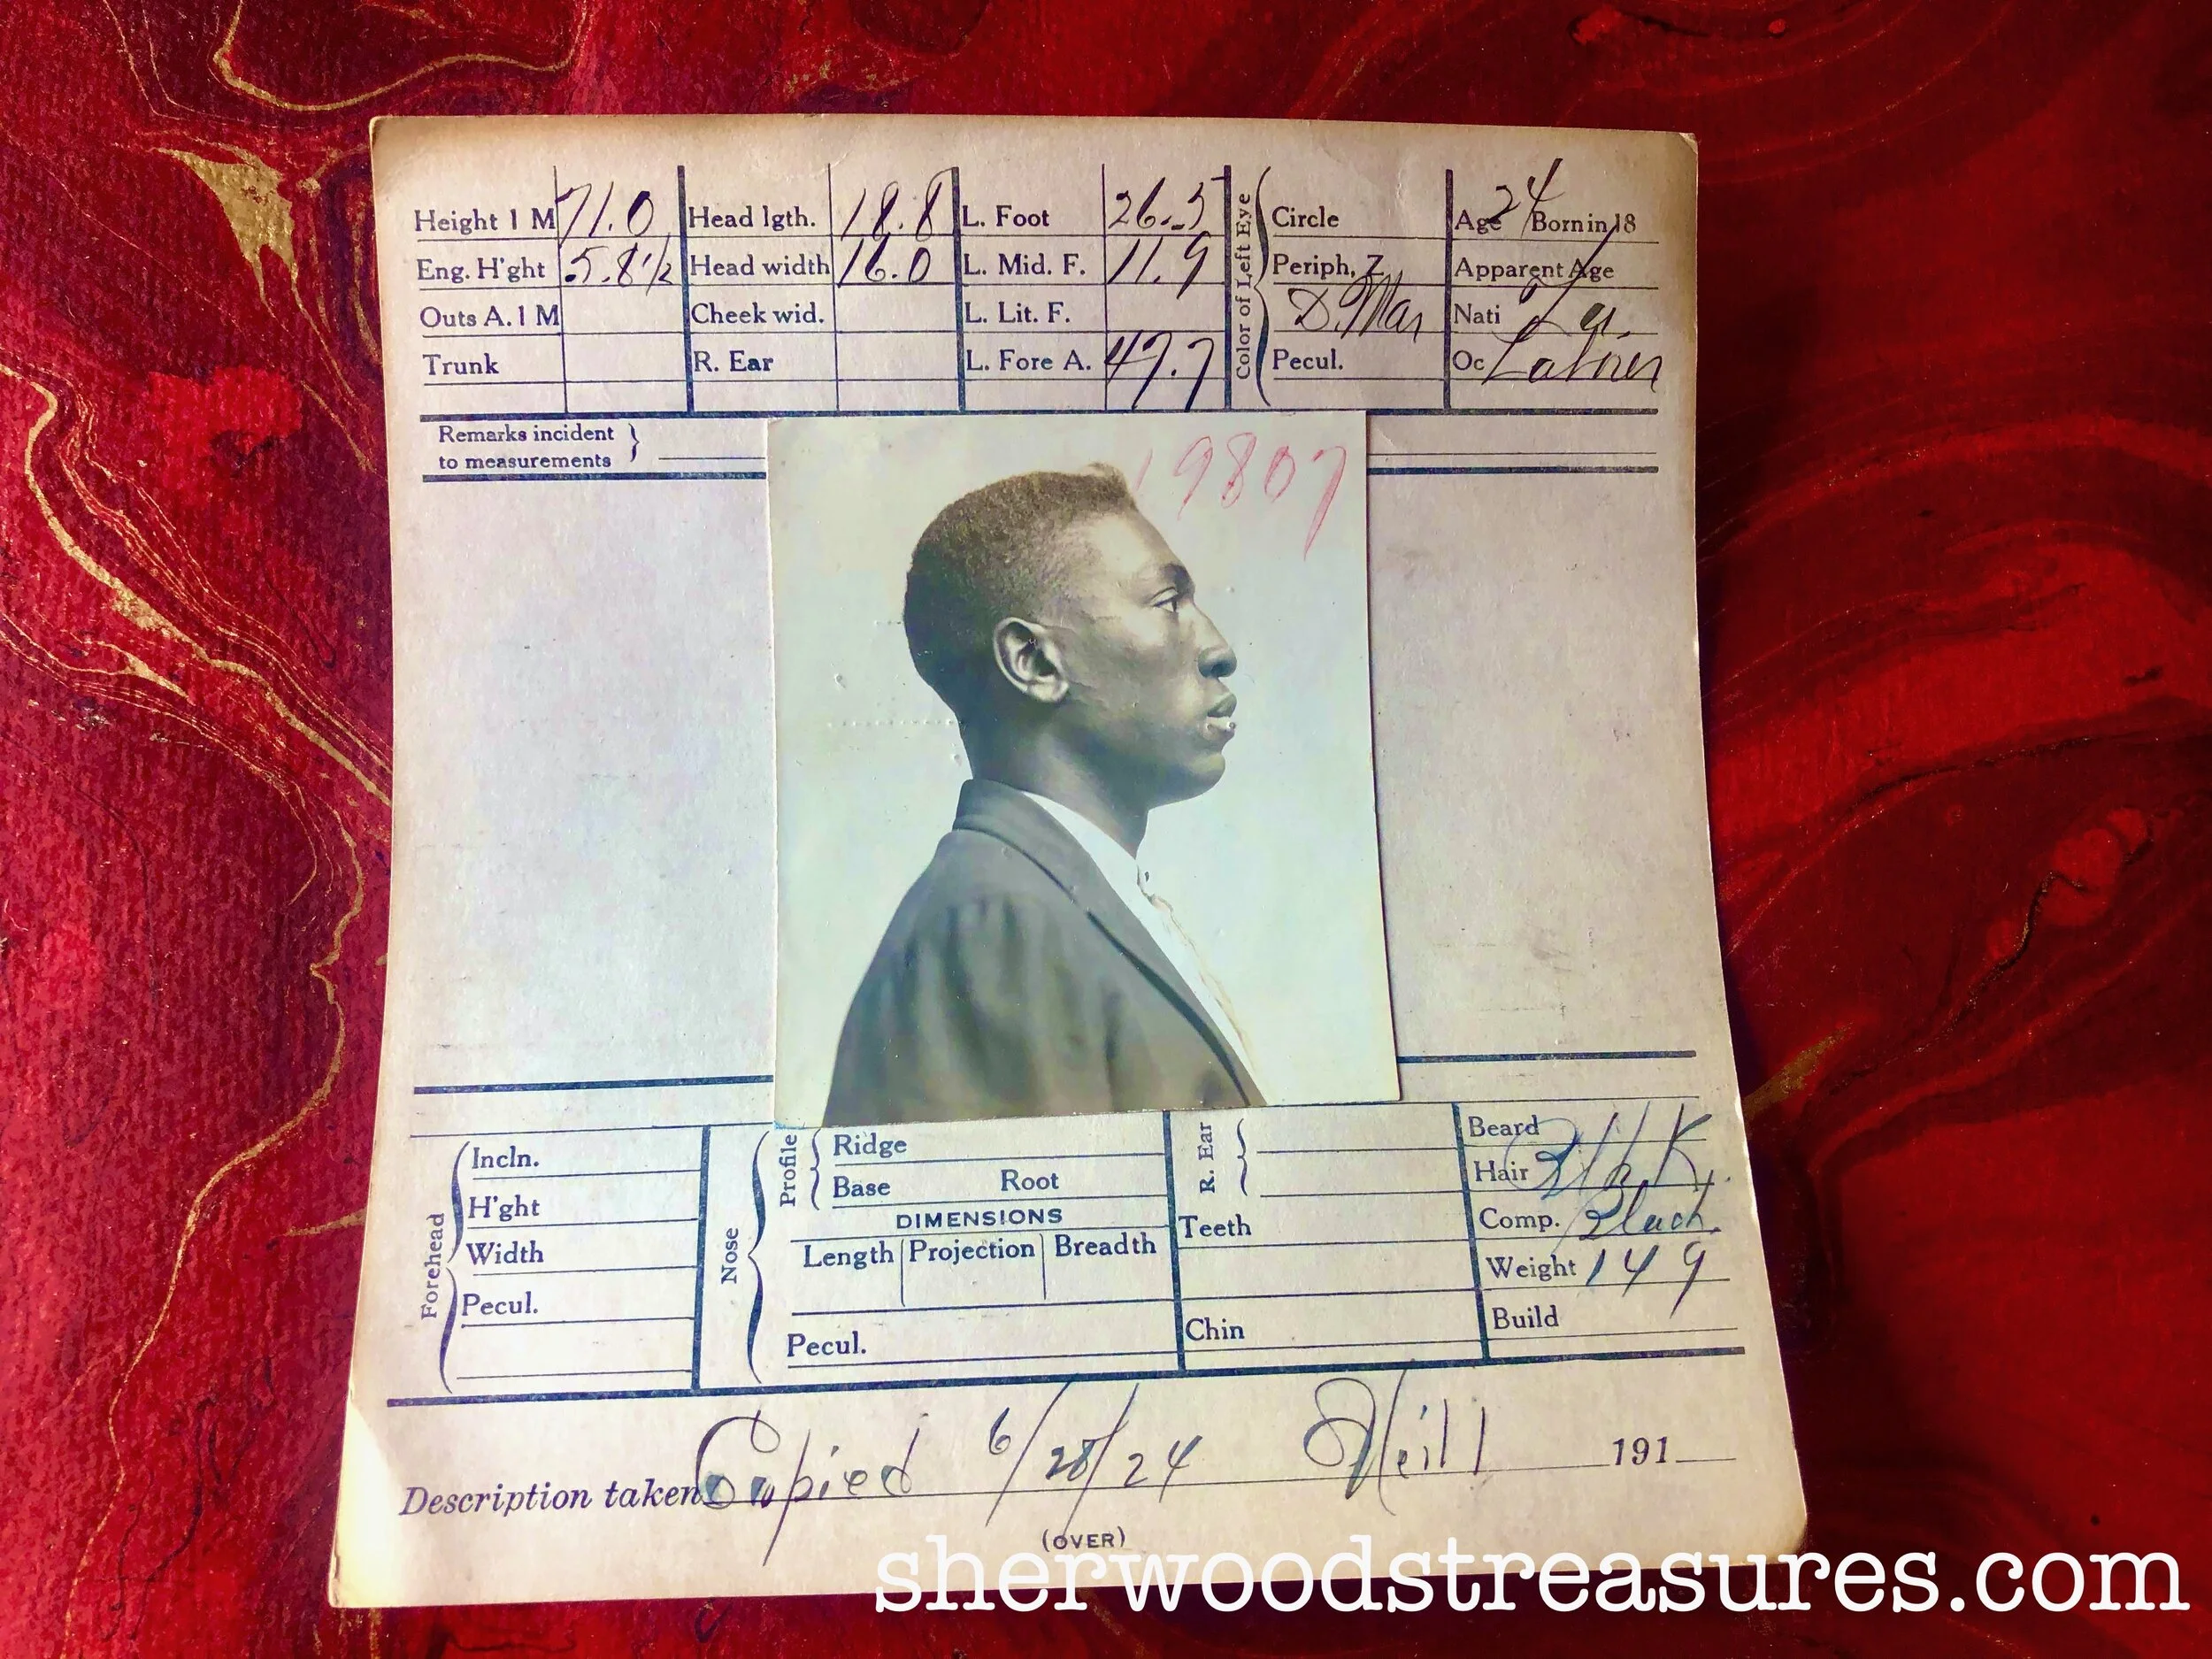 Height 1 M 71.0 Head lgth. 18.8 L. Foot 26.5 Circle Age 24 Born in 18
Eng. H'ght 5.8 1/2 Head width 16.0 L. Mid. F. 11.9 Periph, Z. Apparent Age
Outs A. 1 M Cheek wid. L. Lit. F. D. Mar Nati La.
Trunk R. Ear L. Fore A. 47.7 Pecul. Oc Laborer
Color of Left Eye
Remarks incident
to measurements
19807
Forehead
Incln.
H'ght
Width
Pecul.
Nose
Profile
Ridge
Base Root
DIMENSIONS
Length Projection Breadth
Pecul.
R. Ear
Teeth
Chin
Beard
Hair Blk.
Comp. Black
Weight 149
Build
Description taken Copied 6/28/24 191
(OVER)
sherwoodstreasures.com